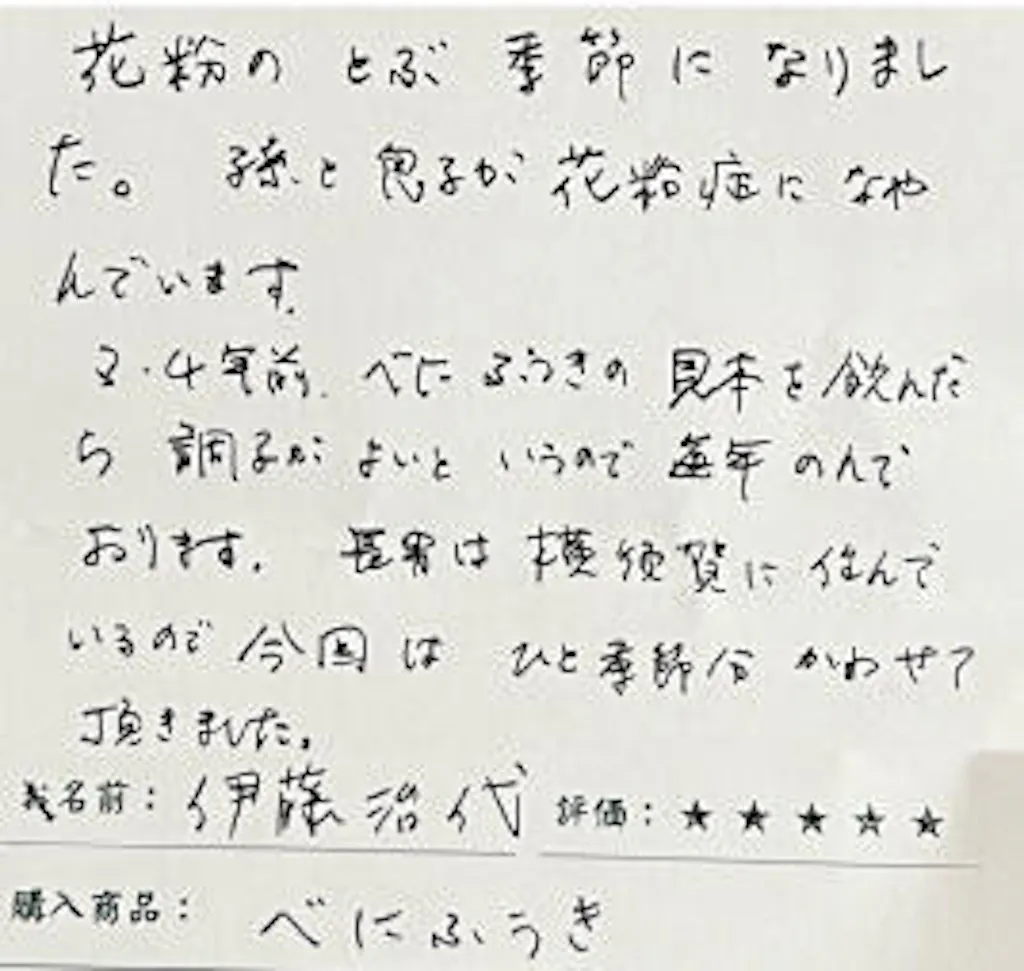 花粉のとぶ季節になりまし
た。 孫と息子が花粉症になや
んでいます。
3・4年前、べにふうきの見本を飲んだ
ら 調子がよいというので毎年のんで
おります。 長男は横須賀に住んで
いるので今回は ひと季節分かわせて
頂きました。
お名前: 伊藤治代 評価: ★★★★★
購入商品: べにふうき